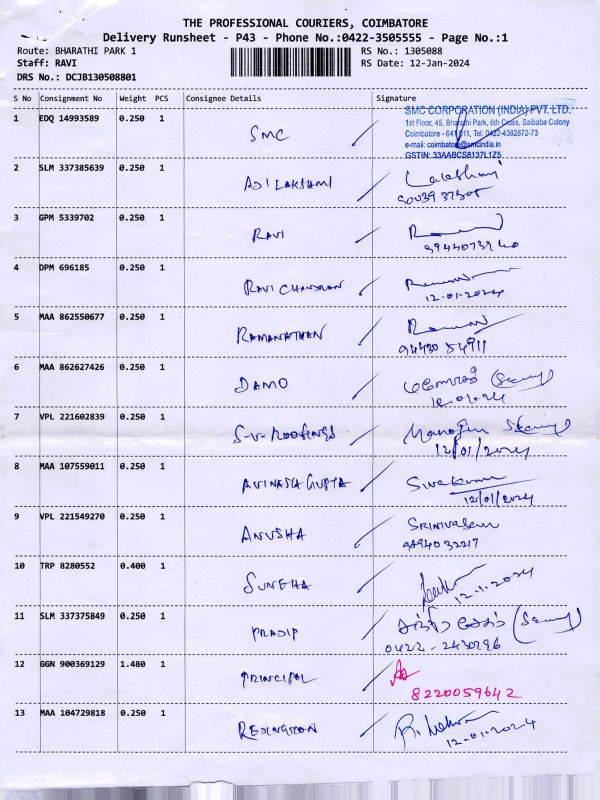 THE PROFESSIONAL COURIERS, COIMBATORE
Delivery Runsheet - P43 - Phone No.:0422-3505555 - Page No.:1
Route: BHARATHI PARK 1 RS No.: 1305088
Staff: RAVI RS Date: 12-Jan-2024
DRS No.: DCJB130508801
S No Consignment No Weight PCS Consignee Details Signature
1 EDQ 14993589 0.250 1 SMC
SMC CORPORATION (INDIA) PVT. LTD.
1st Floor, 45, Bharathi Park, 6th Cross, Saibaba Colony
Coimbatore - 641 011, Tel: 0422-4382872-73
e-mail: coimbatore@smcindia.in
GSTIN: 33AABCS8137L1Z5
2 SLM 337385639 0.250 1 ADILAKSHMI
3 GPM 5339702 0.250 1 RAVI
4 DPM 696185 0.250 1 RAVI CHANDRAN
12-01-2024
5 MAA 862550677 0.250 1 RAMANATHAN
94430 54911
6 MAA 862627426 0.250 1 DAMO
12-01-24
7 VPL 221602839 0.250 1 S-V-ROOFINGS
12/01/2024
8 MAA 107559011 0.250 1 AVINASH GUPTA Sivakumar
12/01/2024
9 VPL 221549270 0.250 1 ANUSHA SRINIVASAN
9894032217
10 TRP 8280552 0.400 1 SUNEHA
12-1-2024
11 SLM 337375849 0.250 1 PRADIP
0422-2430296
12 GGN 900369129 1.480 1 PRINCIPAL
8220059642
13 MAA 104729818 0.250 1 REDINGTON
12-01-2024